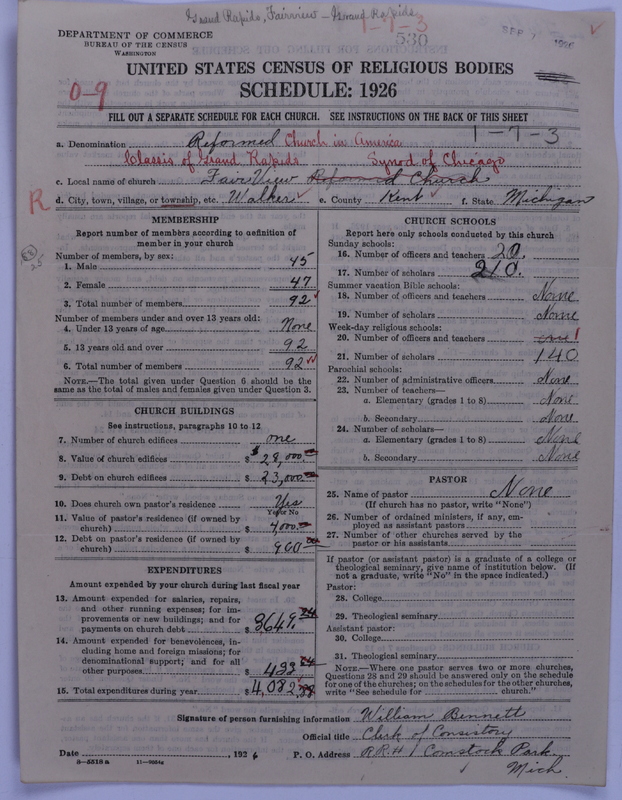 Grand Rapids, Fairview - Grand Rapids
1-7-3
530
SEP 7 1926
DEPARTMENT OF COMMERCE
BUREAU OF THE CENSUS
WASHINGTON
UNITED STATES CENSUS OF RELIGIOUS BODIES
SCHEDULE: 1926
0-9
FILL OUT A SEPARATE SCHEDULE FOR EACH CHURCH. SEE INSTRUCTIONS ON THE BACK OF THIS SHEET
1-7-3
a. Denomination Reformed Church in America
Classis of Grand Rapids Synod of Chicago
c. Local name of church Fair View Reformed Church
R
d. City, town, village, or township, etc. Walker e. County Kent f. State Michigan
MEMBERSHIP
Report number of members according to definition of
member in your church
Number of members, by sex:
1. Male 45
2. Female 47
3. Total number of members 92
Number of members under and over 13 years old:
4. Under 13 years of age None
5. 13 years old and over 92
6. Total number of members 92
NOTE.—The total given under Question 6 should be
same as the total of males and females given under Question 3.
CHURCH BUILDINGS
See instructions, paragraphs 10 to 12
7. Number of church edifices one
8. Value of church edifices $28,000.00
9. Debt on church edifices $23,000.00
10. Does church own pastor's residence Yes
Yes or No
11. Value of pastor's residence (if owned by
church) $4000.00
12. Debt on pastor's residence (if owned by
church) $900.00
EXPENDITURES
Amount expended by your church during last fiscal year
13. Amount expended for salaries, repairs,
and other running expenses; for im-
provements or new buildings; and for
payments on church debt $3649.24
14. Amount expended for benevolences, in-
cluding home and foreign missions; for
denominational support; and for all
other purposes $433
15. Total expenditures during year $4,082
CHURCH SCHOOLS
Report here only schools conducted by this church
Sunday schools:
16. Number of officers and teachers 20.
17. Number of scholars 210.
Summer vacation Bible schools:
18. Number of officers and teachers None
19. Number of scholars None
Week-day religious schools:
20. Number of officers and teachers one 1
21. Number of scholars 140
Parochial schools:
22. Number of administrative officers None
23. Number of teachers—
a. Elementary (grades 1 to 8) None
b. Secondary None
24. Number of scholars—
a. Elementary (grades 1 to 8) None
b. Secondary None
PASTOR
25. Name of pastor None
(If church has no pastor, write "None")
26. Number of ordained ministers, if any, em-
ployed as assistant pastors
27. Number of other churches served by the
pastor or his assistants
If pastor (or assistant pastor) is a graduate of a college or
theological seminary, give name of institution below. (If
not a graduate, write "No" in the space indicated.)
Pastor:
28. College
29. Theological seminary
Assistant pastor:
30. College
31. Theological seminary
NOTE.—Where one pastor serves two or more churches,
Questions 28 and 29 should be answered only on the schedule
for one of the churches; on the schedules for the other churches,
write "See schedule for church."
Signature of person furnishing information William Bennett
Official title Clerk of Consistory
Date , 1926 P. O. Address R.R.#1 Comstock Park,
Mich.
8-5518a 11-9054z